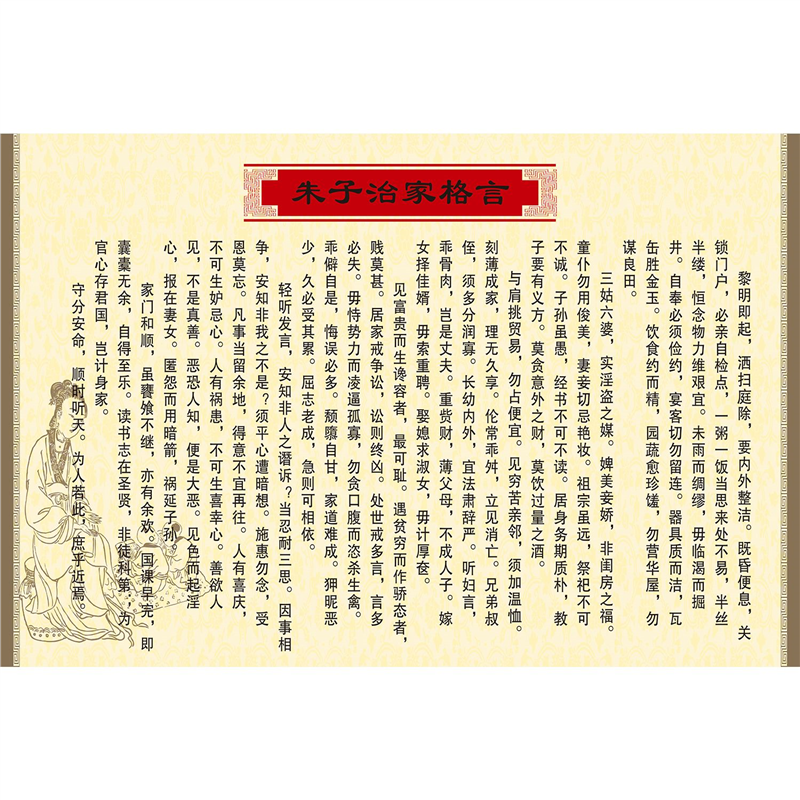 朱子治家格言
黎明即起，洒扫庭除，要内外整洁。既昏便息，关
锁门户，必亲自检点，一粥一饭当思来处不易，半丝
半缕，恒念物力维艰宜。未雨而绸缪，毋临渴而掘
井。自奉必须俭约，宴客切勿留连。器具质而洁，瓦
缶胜金玉。饮食约而精，园蔬愈珍馐，勿营华屋，勿
谋良田。
三姑六婆，实淫盗之媒。婢美妾娇，非闺房之福。
童仆勿用俊美，妻妾切忌艳妆。祖宗虽远，祭祀不可
不诚。子孙虽愚，经书不可不读。居身务期质朴，教
子要有义方。莫贪意外之财，莫饮过量之酒。
与肩挑贸易，勿占便宜。见穷苦亲邻，须加温恤。
刻薄成家，理无久享。伦常乖舛，立见消亡。兄弟叔
侄，须多分润寡。长幼内外，宜法肃辞严。听妇言，
乖骨肉，岂是丈夫。重赀财，薄父母，不成人子。嫁
女择佳婿，毋索重聘。娶媳求淑女，毋计厚奁。
见富贵而生谗容者，最可耻。遇贫穷而作骄态者，
贱莫甚。居家戒争讼，讼则终凶。处世戒多言，言多
必失。毋恃势力而凌逼孤寡，勿贪口腹而恣杀生禽。
乖僻自是，悔误必多。颓隳自甘，家道难成。狎昵恶
少，久必受其累。屈志老成，急则可相依。
轻听发言，安知非人之谮诉？当忍耐三思。因事相
争，安知非我之不是？须平心遭暗想。施惠勿念，受
恩莫忘。凡事当留余地，得意不宜再往。人有喜庆，
不可生妒忌心。人有祸患，不可生喜幸心。善欲人
见，不是真善。恶恐人知，便是大恶。见色而起淫
心，报在妻女。匿怨而用暗箭，祸延子孙。
家门和顺，虽饔飧不继，亦有余欢。国课早完，即
囊橐无余，自得至乐。读书志在圣贤，非徒科第，为
官心存君国，岂计身家。
守分安命，顺时听天。为人若此，庶乎近焉。